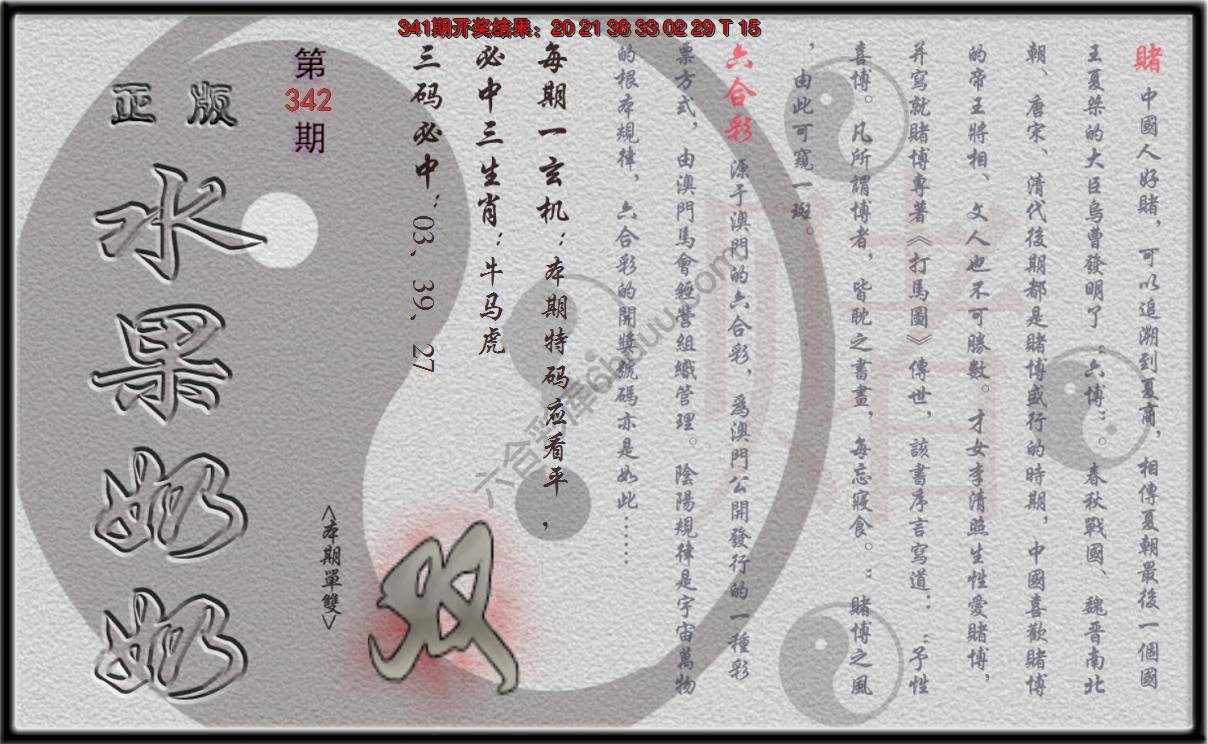 341期开奖结果：20 21 38 33 02 29 T 15
賭 中國人好賭，可以追溯到夏商，相傳夏朝最後一個國
王夏桀的大臣烏曹發明了“六博”。春秋戰國、魏晉南北
朝、唐宋、清代後期都是賭博盛行的時期，中國喜歡賭博
的帝王將相、文人也不可勝數。才女李清照生性愛賭博，
并寫就賭博專著《打馬圖》傳世，該書序言寫道：“予性
喜博。凡所謂博者，皆耽之書畫，每忘寢食。：賭博之風
，由此可窺一斑。
六合彩 源于澳門的六合彩，爲澳門公開發行的一種彩
票方式，由澳門馬會經營組織管理。陰陽規律是宇宙萬物
的根本規律，六合彩的開獎號碼亦是如此……
每期一玄机：本期特码应看平，
必中三生肖：牛马虎
三码必中：03、39、27
<本期單雙>
双
第
342
期
正版
水果奶奶
赌
六合彩库6hduu.com